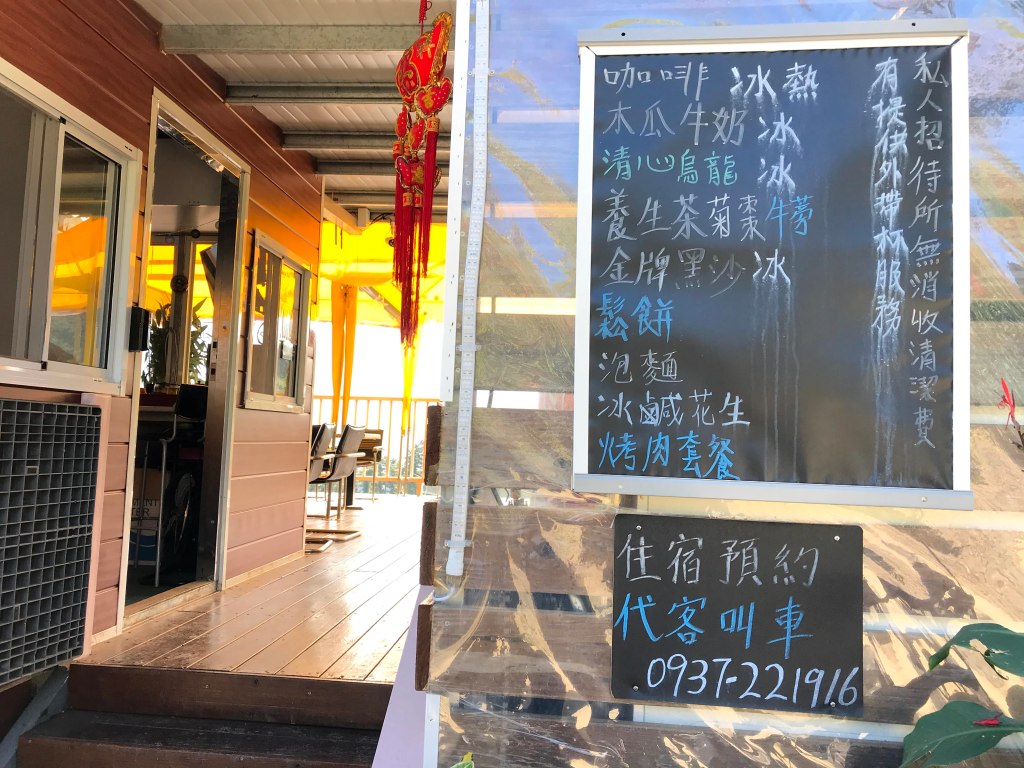 咖啡 冰熱
木瓜牛奶 冰
清心烏龍 冰
養生茶菊棗牛蒡
金牌黑沙冰
鬆餅
泡麵
冰鹹花生
烤肉套餐
私人招待所無消收清潔費
有提供外帶杯服務
住宿預約
代客叫車
0937-221916